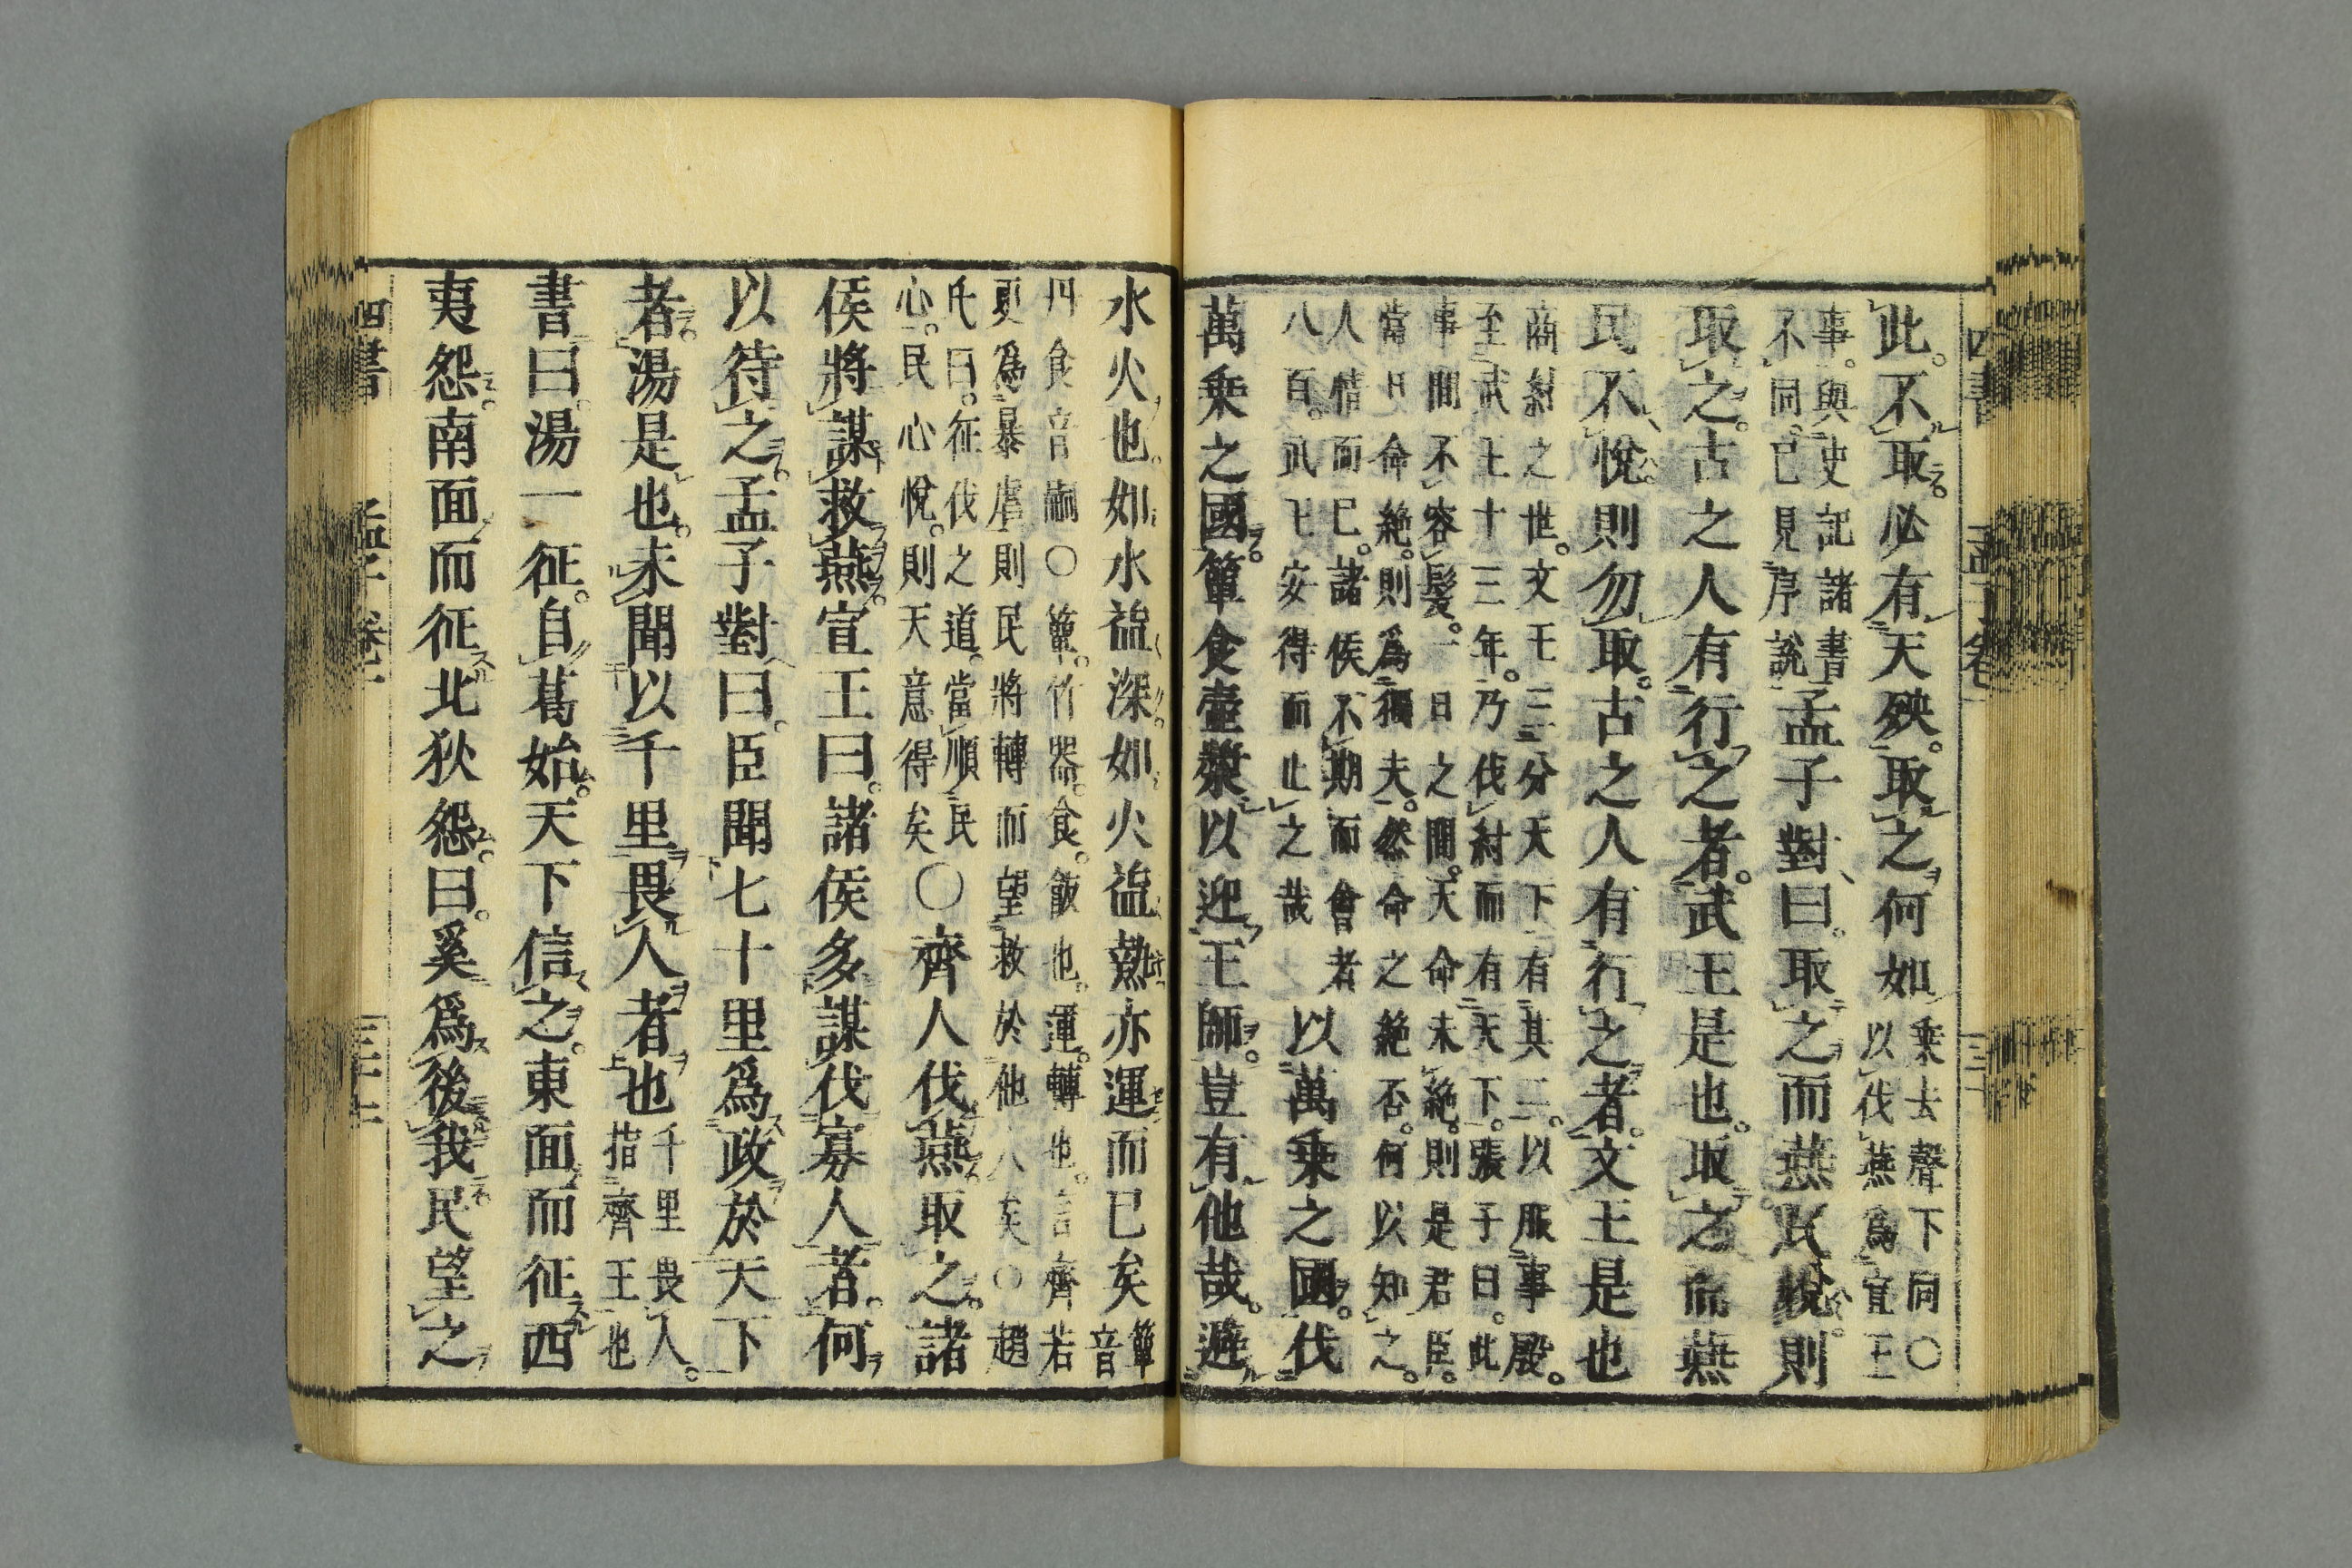 此。不取必有天殃。取之何如
乗去聲下同○
以伐燕爲宣王
事。與史記諸書
不同。已見序說
孟子對曰。取之而燕民悅。則
取之。古之人有行之者。武王是也。取之而燕
民不悅。則勿取。古之人有行之者。文王是也
商紂之世。文王三分天下有其二。以服事殷。
至武王十三年。乃伐紂而有天下。張子曰。此
事間不容髪。一日之間。天命未絶。則是君臣。
當日命絶。則爲獨夫。然命之絶否。何以知之。
人情而已。諸侯不期而會者
八百。武王安得而止之哉
以萬乗之國。伐
萬乗之國。簞食壷漿以迎王師。豈有他哉。避
水火也。如水益深。如火益熱。亦運而已矣
簞音
丹食音嗣○簞。竹器。食。飯也。運。轉也。言齊若
更爲暴虐。則民將轉而望救於他人矣○趙
氏曰。征伐之道。當順民
心。民心悅。則天意得矣
○齊人伐燕取之。諸
侯將謀救燕。宣王曰。諸侯多謀伐寡人者。何
以待之。孟子對曰。臣聞七十里爲政於天下
者。湯是也。未聞以千里畏人者也
千里畏人。
指齊王也
書曰。湯一征。自葛始。天下信之。東面而征西
夷怨。南面而征北狄怨。曰。奚爲後我。民望之
四書
孟子卷